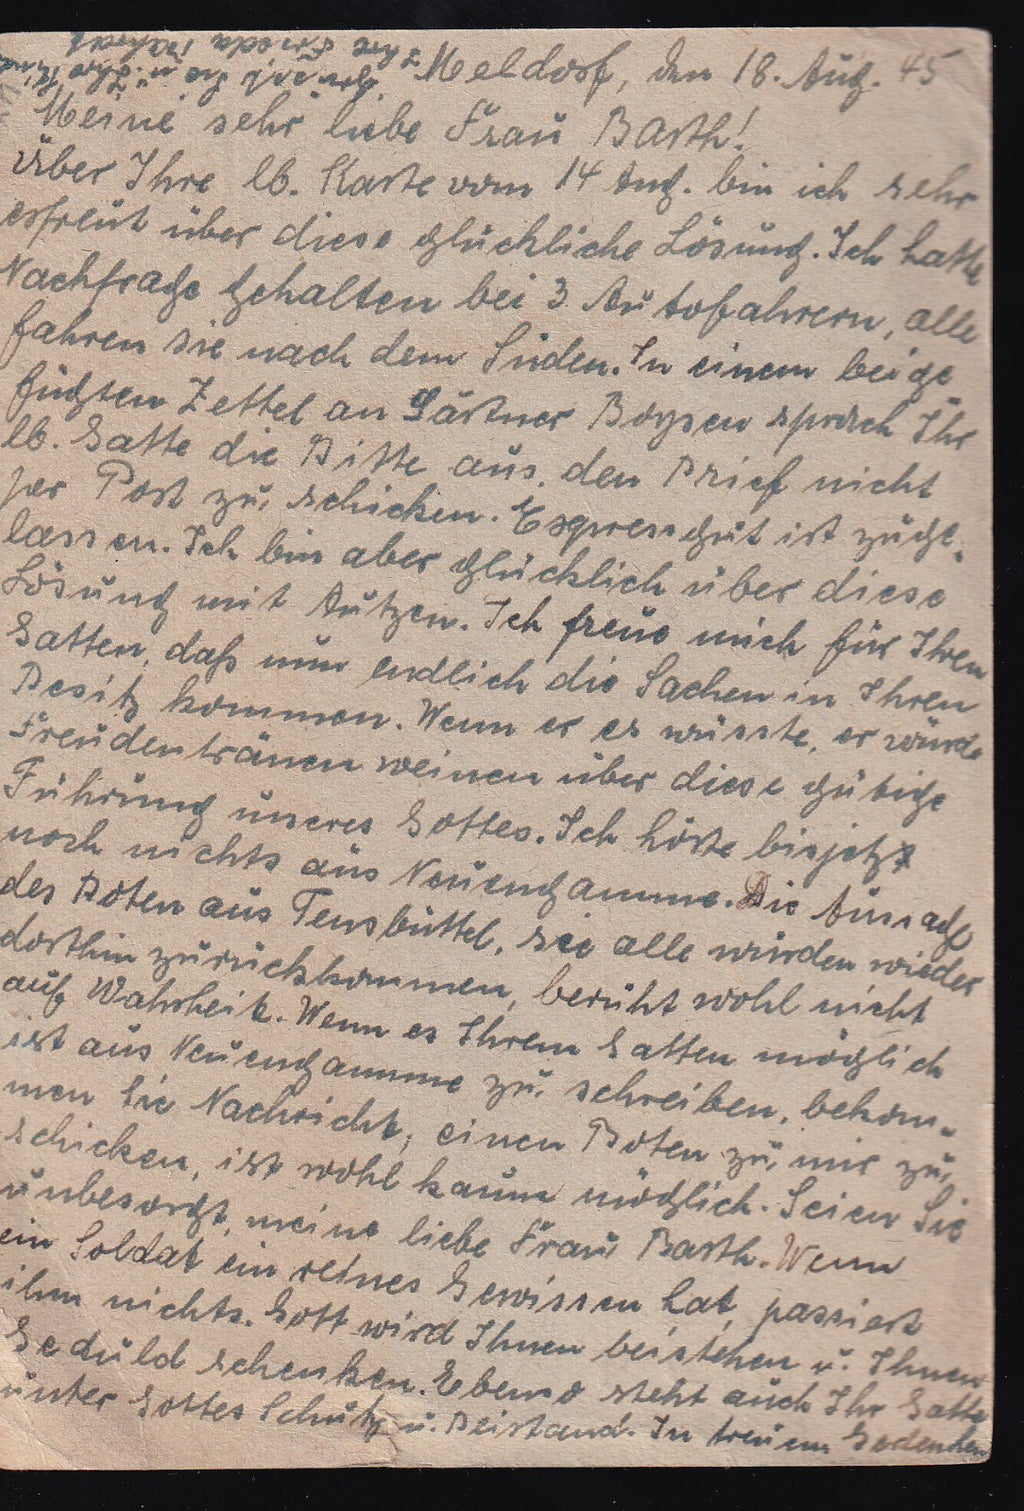 Meldorf, den 18. Aug. 45
Meine sehr liebe Frau Barth!
Über Ihre lb. Karte vom 14 Aug. bin ich sehr
erfreut über diese glückliche Lösung. Ich hatte
Nachfrage gehalten bei 3 Autofahrern, alle
fahren sie nach dem Süden. In einem beige
fügten Zettel an Gärtner Boysen sprach Ihr
lb. Gatte die Bitte aus, den Brief nicht
per Post zu schicken. Expressgut ist zuge-
lassen. Ich bin aber glücklich über diese
Lösung mit Autzen. Ich freue mich für Ihren
Gatten, daß nun endlich die Sachen in Ihren
Besitz kommen. Wenn er es wüsste, er würde
Freudentränen weinen über diese gütige
Führung unseres Gottes. Ich hörte bisjetzt
noch nichts aus Neuengamme. Die Aussage
des Boten aus Tensbüttel, sie alle würden wieder
dorthin zurückkommen, beruht wohl nicht
auf Wahrheit. Wenn es Ihrem Gatten möglich
ist aus Neuengamme zu schreiben, bekom-
men Sie Nachricht, einen Boten zu mir zu
schicken, ist wohl kaum möglich. Seien Sie
unbesorgt, meine liebe Frau Barth. Wenn
ein Soldat ein reines Gewissen hat, passiert
ihm nichts. Gott wird Ihnen beistehen u. Ihnen
Geduld schenken. Ebenso steht auch Ihr Gatte
unter Gottes Schutz u. Beistand. In treuem Gedenken
Ihre Frieda